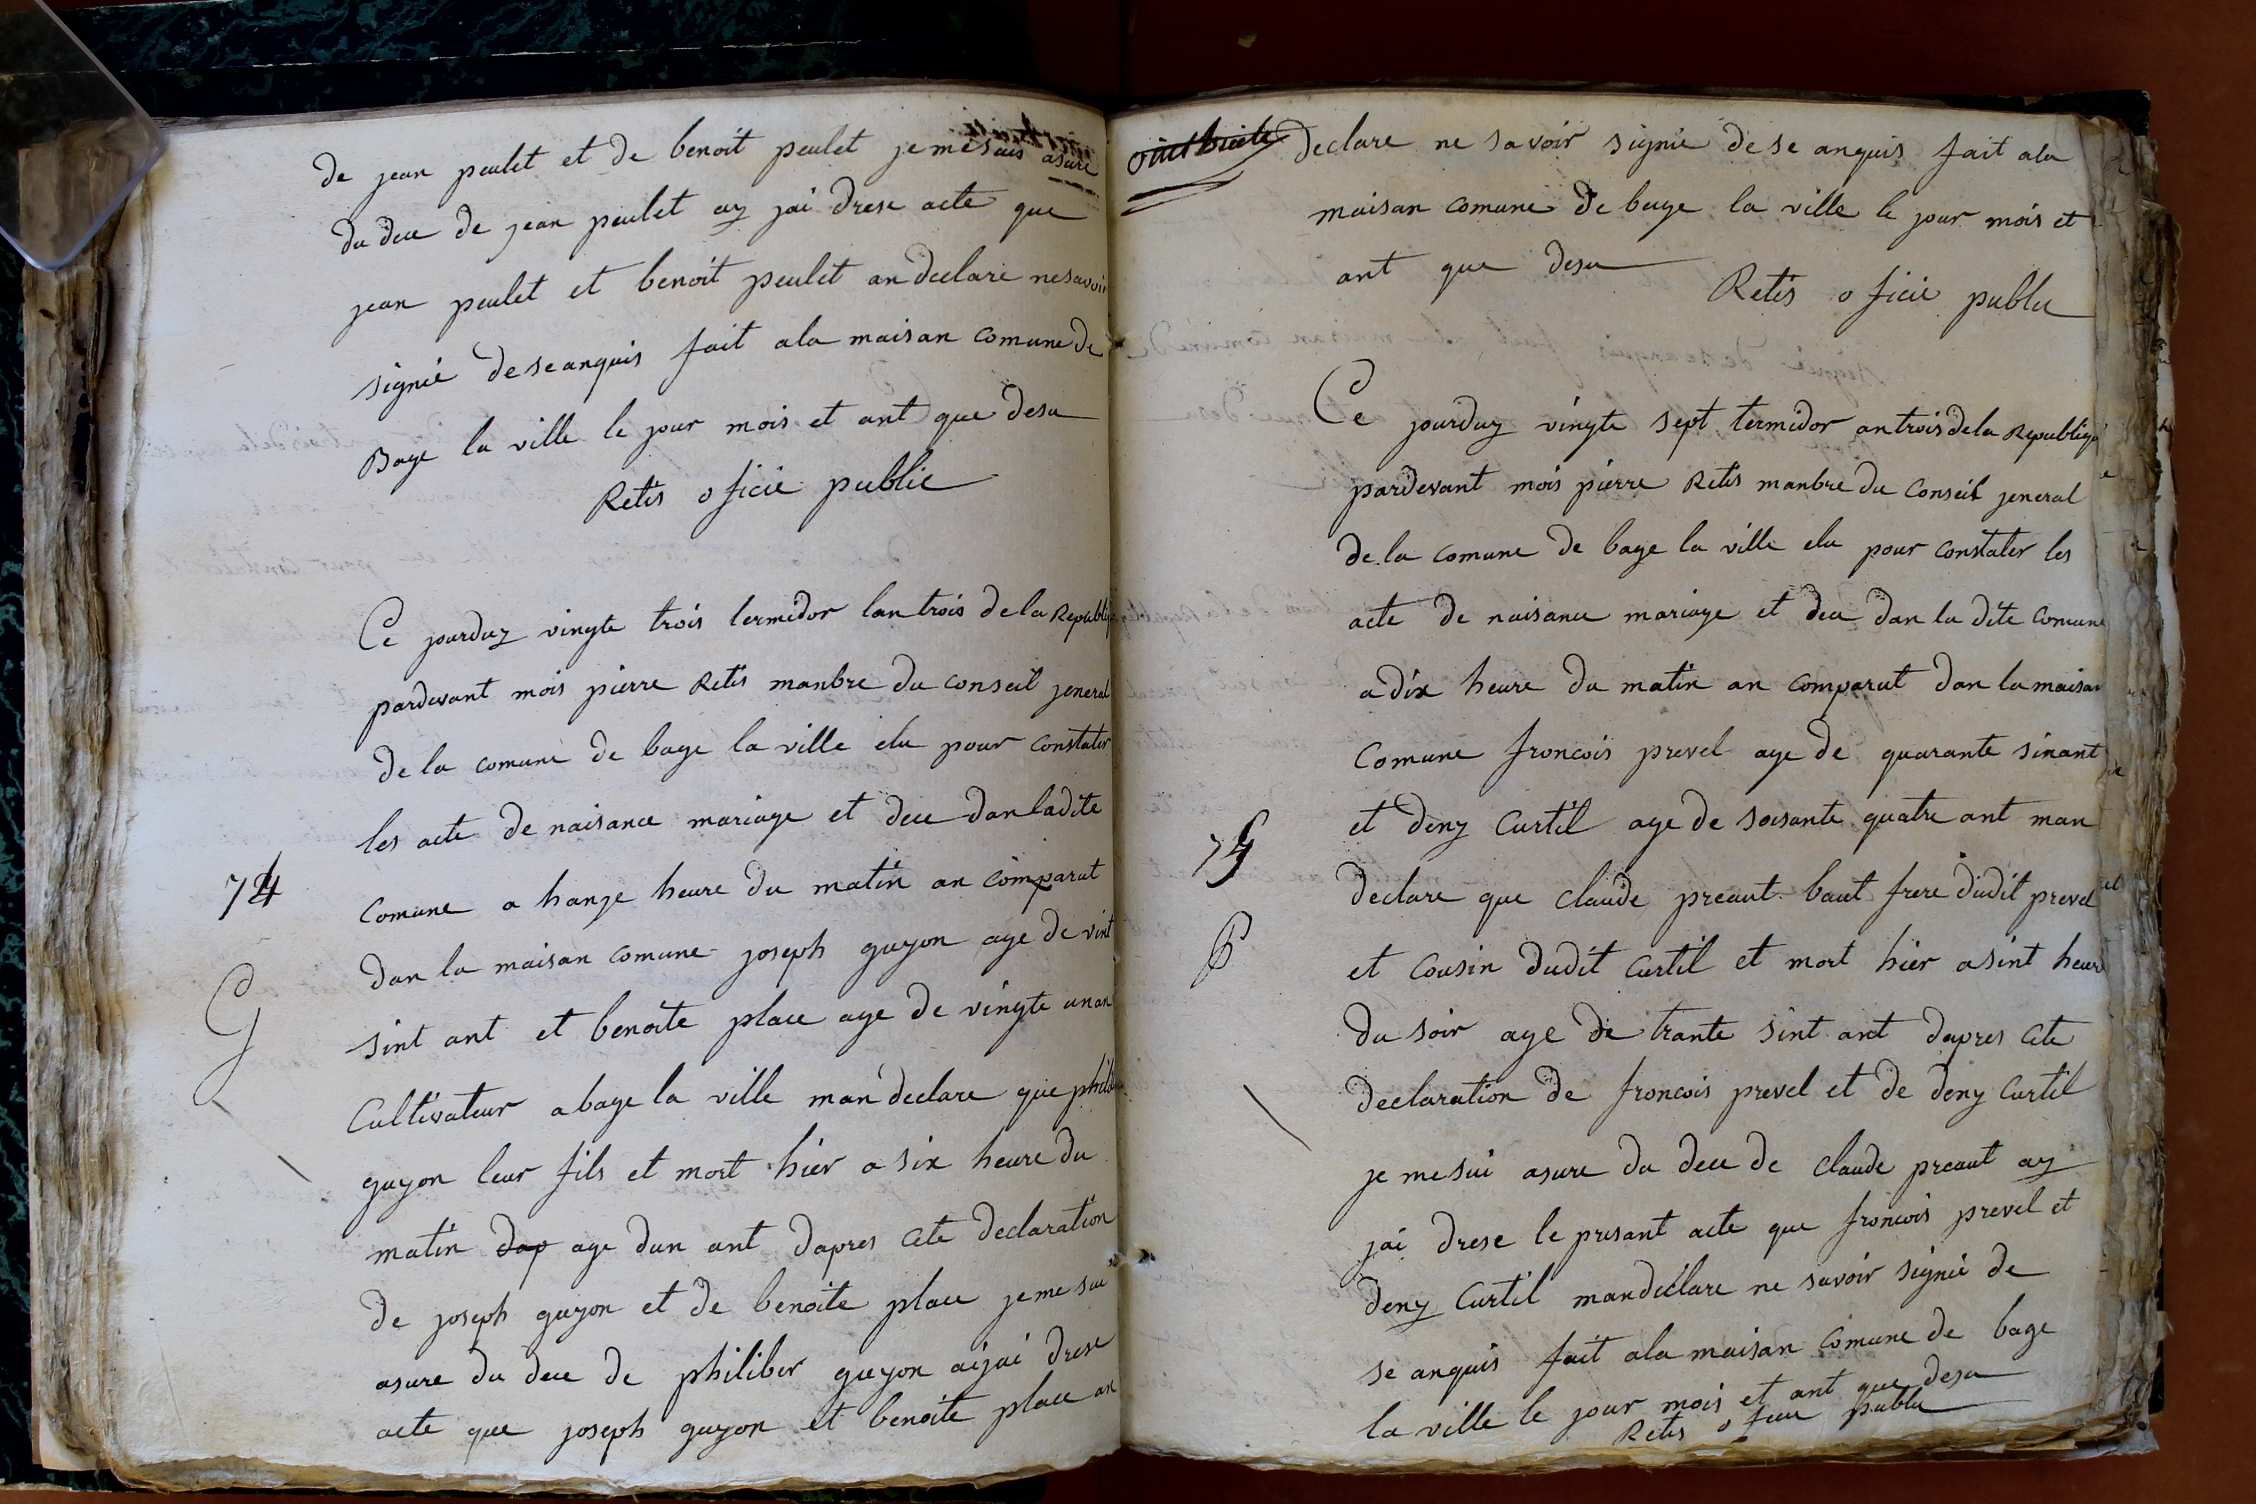 de jean peulet et de benoit peulet je me suis asuré
du dece de jean peulet ay jai drese acte que
jean peulet et benoit peulet an declare ne savoir
signié de se anquis fait a la maisan comune de
Bage la ville le jour mois et ant que desu
Retis oficié public
Ce jourduy vingte trois termidor lan trois de la Republiq
pardevant mois pierre Retis manbre du conseil jeneral
de la comune de bage la ville elu pour constater
les acte de naisance mariage et dece dan ladite
74
comune a hanze heure du matin an comparut
dan la maisan comune joseph guyon age de vint
sint ant et benoite place age de vingte un an
G
Cultivateur a bage la ville man declare que phili
guyon leur fils et mort hier a six heure du
matin dap age dun ant dapres cete declaration
de joseph guyon et de benoite place je me sui
asure du dece de philiber guyon ai jai drese
acte que joseph guyon et benoite place an
declare ne savoir signié de se anquis fait a la
maisan comune de bage la ville le jour mois et
ant que desu
Retis oficié public
Ce jourduy vingte sept termidor an trois de la Republiq
pardevant mois pierre Retis manbre du conseil jeneral
de la comune de bage la ville elu pour constater les
acte de naisance mariage et dece dan la dite comune
a dix heure du matin an comparut dan la maisan
comune froncois prevel age de quarante sinant
et deny Curtil age de soisante quatre ant man
75
declare que claude preaut baut frere dudit prevel
P
et cousin dudit curtil et mort hier a sint heure
du soir age de trante sint ant dapres cete
declaration de froncois prevel et de deny Curtil
je me sui asure du dece de claude preaut ay
jai drese le presant acte que froncois prevel et
deny Curtil man declare ne savoir signié de
se anquis fait a la maisan comune de bage
la ville le jour mois et ant que desu
Retis oficié public